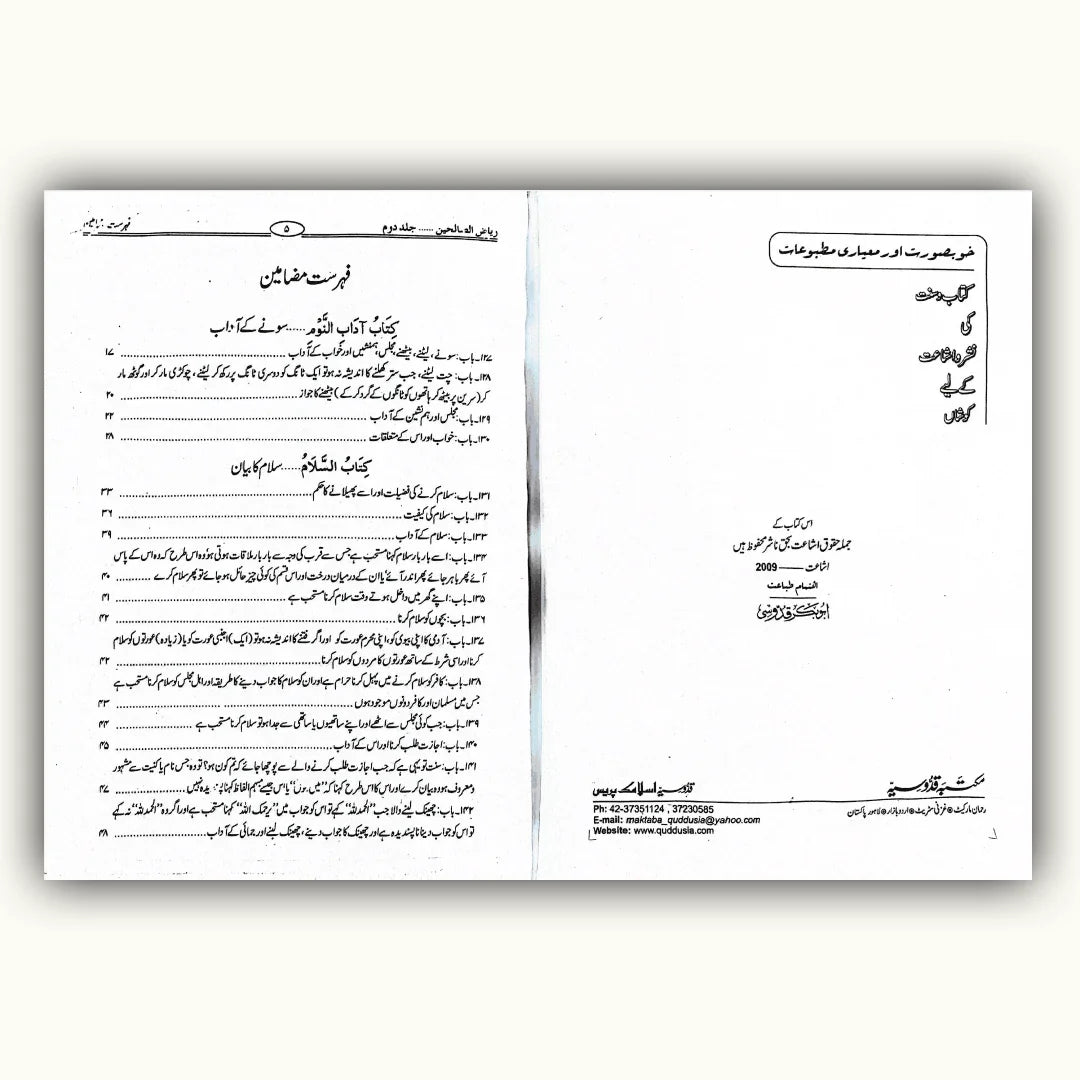 خوبصورت اور معیاری مطبوعات
کتاب و سنت
کی
نشر و اشاعت
کے لیے
کوشاں
اس کتاب کے
جملہ حقوق اشاعت بحق ناشر محفوظ ہیں
اشاعت —— 2009
اہتمام طباعت
ابوبکر قدوسی
مکتبہ قدوسیہ
رحمان مارکیٹ ● غزنی سٹریٹ ● اردو بازار ● لاہور پاکستان
قدوسیہ اسلامک پریس
Ph: 42-37351124 , 37230585
E-mail: maktaba_quddusia@yahoo.com
Website: www.quddusia.com
ریاض الصالحین ...... جلد دوم ۵ فہرست
فہرست مضامین
کِتَابُ آدَابِ النَّوْمِ ...... سونے کے آداب
۱۲۷۔ باب: سونے، لیٹنے، بیٹھنے، مجلس، ہمنشیں اور خواب کے آداب ...... ۱۷
۱۲۸۔ باب: چت لیٹنے، جب ستر کھلنے کا اندیشہ نہ ہو تو ایک ٹانگ کو دوسری ٹانگ پر رکھ کر لیٹنے، چوکڑی مار کر اور گوٹھ مار
کر (سرین پر بیٹھ کر ہاتھوں کو ٹانگوں کے گرد کر کے) بیٹھنے کا جواز ...... ۲۰
۱۲۹۔ باب: مجلس اور ہم نشین کے آداب ...... ۲۲
۱۳۰۔ باب: خواب اور اس کے متعلقات ...... ۲۸
کِتَابُ السَّلَامُ ...... سلام کا بیان
۱۳۱۔ باب: سلام کرنے کی فضیلت اور اسے پھیلانے کا حکم ...... ۳۳
۱۳۲۔ باب: سلام کی کیفیت ...... ۳۶
۱۳۳۔ باب: سلام کے آداب ...... ۳۹
۱۳۴۔ باب: اسے بار بار سلام کہنا مستحب ہے جس سے قرب کی وجہ سے بار بار ملاقات ہوتی ہو وہ اس طرح کہ وہ اس کے پاس
آئے پھر باہر جائے پھر اندر آئے یا ان کے درمیان درخت اور اس قسم کی کوئی چیز حائل ہو جائے تو پھر سلام کرے ...... ۴۰
۱۳۵۔ باب: اپنے گھر میں داخل ہوتے وقت سلام کرنا مستحب ہے ...... ۴۱
۱۳۶۔ باب: بچوں کو سلام کرنا ...... ۴۲
۱۳۷۔ باب: آدمی کا اپنی بیوی کو، اپنی محرم عورت کو اور اگر فتنے کا اندیشہ نہ ہو تو (ایک) اجنبی عورت کو یا (زیادہ) عورتوں کو سلام
کرنا اور اسی شرط کے ساتھ عورتوں کا مردوں کو سلام کرنا ...... ۴۲
۱۳۸۔ باب: کافر کو سلام کرنے میں پہل کرنا حرام ہے اور ان کو سلام کا جواب دینے کا طریقہ اور اہل مجلس کو سلام کرنا مستحب ہے
جس میں مسلمان اور کافر دونوں موجود ہوں ...... ۴۳
۱۳۹۔ باب: جب کوئی مجلس سے اٹھے اور اپنے ساتھیوں یا ساتھی سے جدا ہو تو سلام کرنا مستحب ہے ...... ۴۴
۱۴۰۔ باب: اجازت طلب کرنا اور اس کے آداب ...... ۴۵
۱۴۱۔ باب: سنت تو یہی ہے کہ جب اجازت طلب کرنے والے سے پوچھا جائے کہ تم کون ہو؟ تو وہ جس نام یا کنیت سے مشہور
و معروف ہو وہ بیان کرے اور اس کا اس طرح کہنا کہ "میں ہوں" یا اس جیسے مبہم الفاظ کہنا پسندیدہ نہیں ...... ۴۷
۱۴۲۔ باب: چھینک لینے والا جب "الحمد للہ" کہے تو اس کو جواب میں "یرحمک اللہ" کہنا مستحب ہے اور اگر وہ "الحمد للہ" نہ کہے
تو اس کو جواب دینا ناپسندیدہ ہے اور چھینک کا جواب دینے، چھینک لینے اور جمائی کے آداب ...... ۴۸